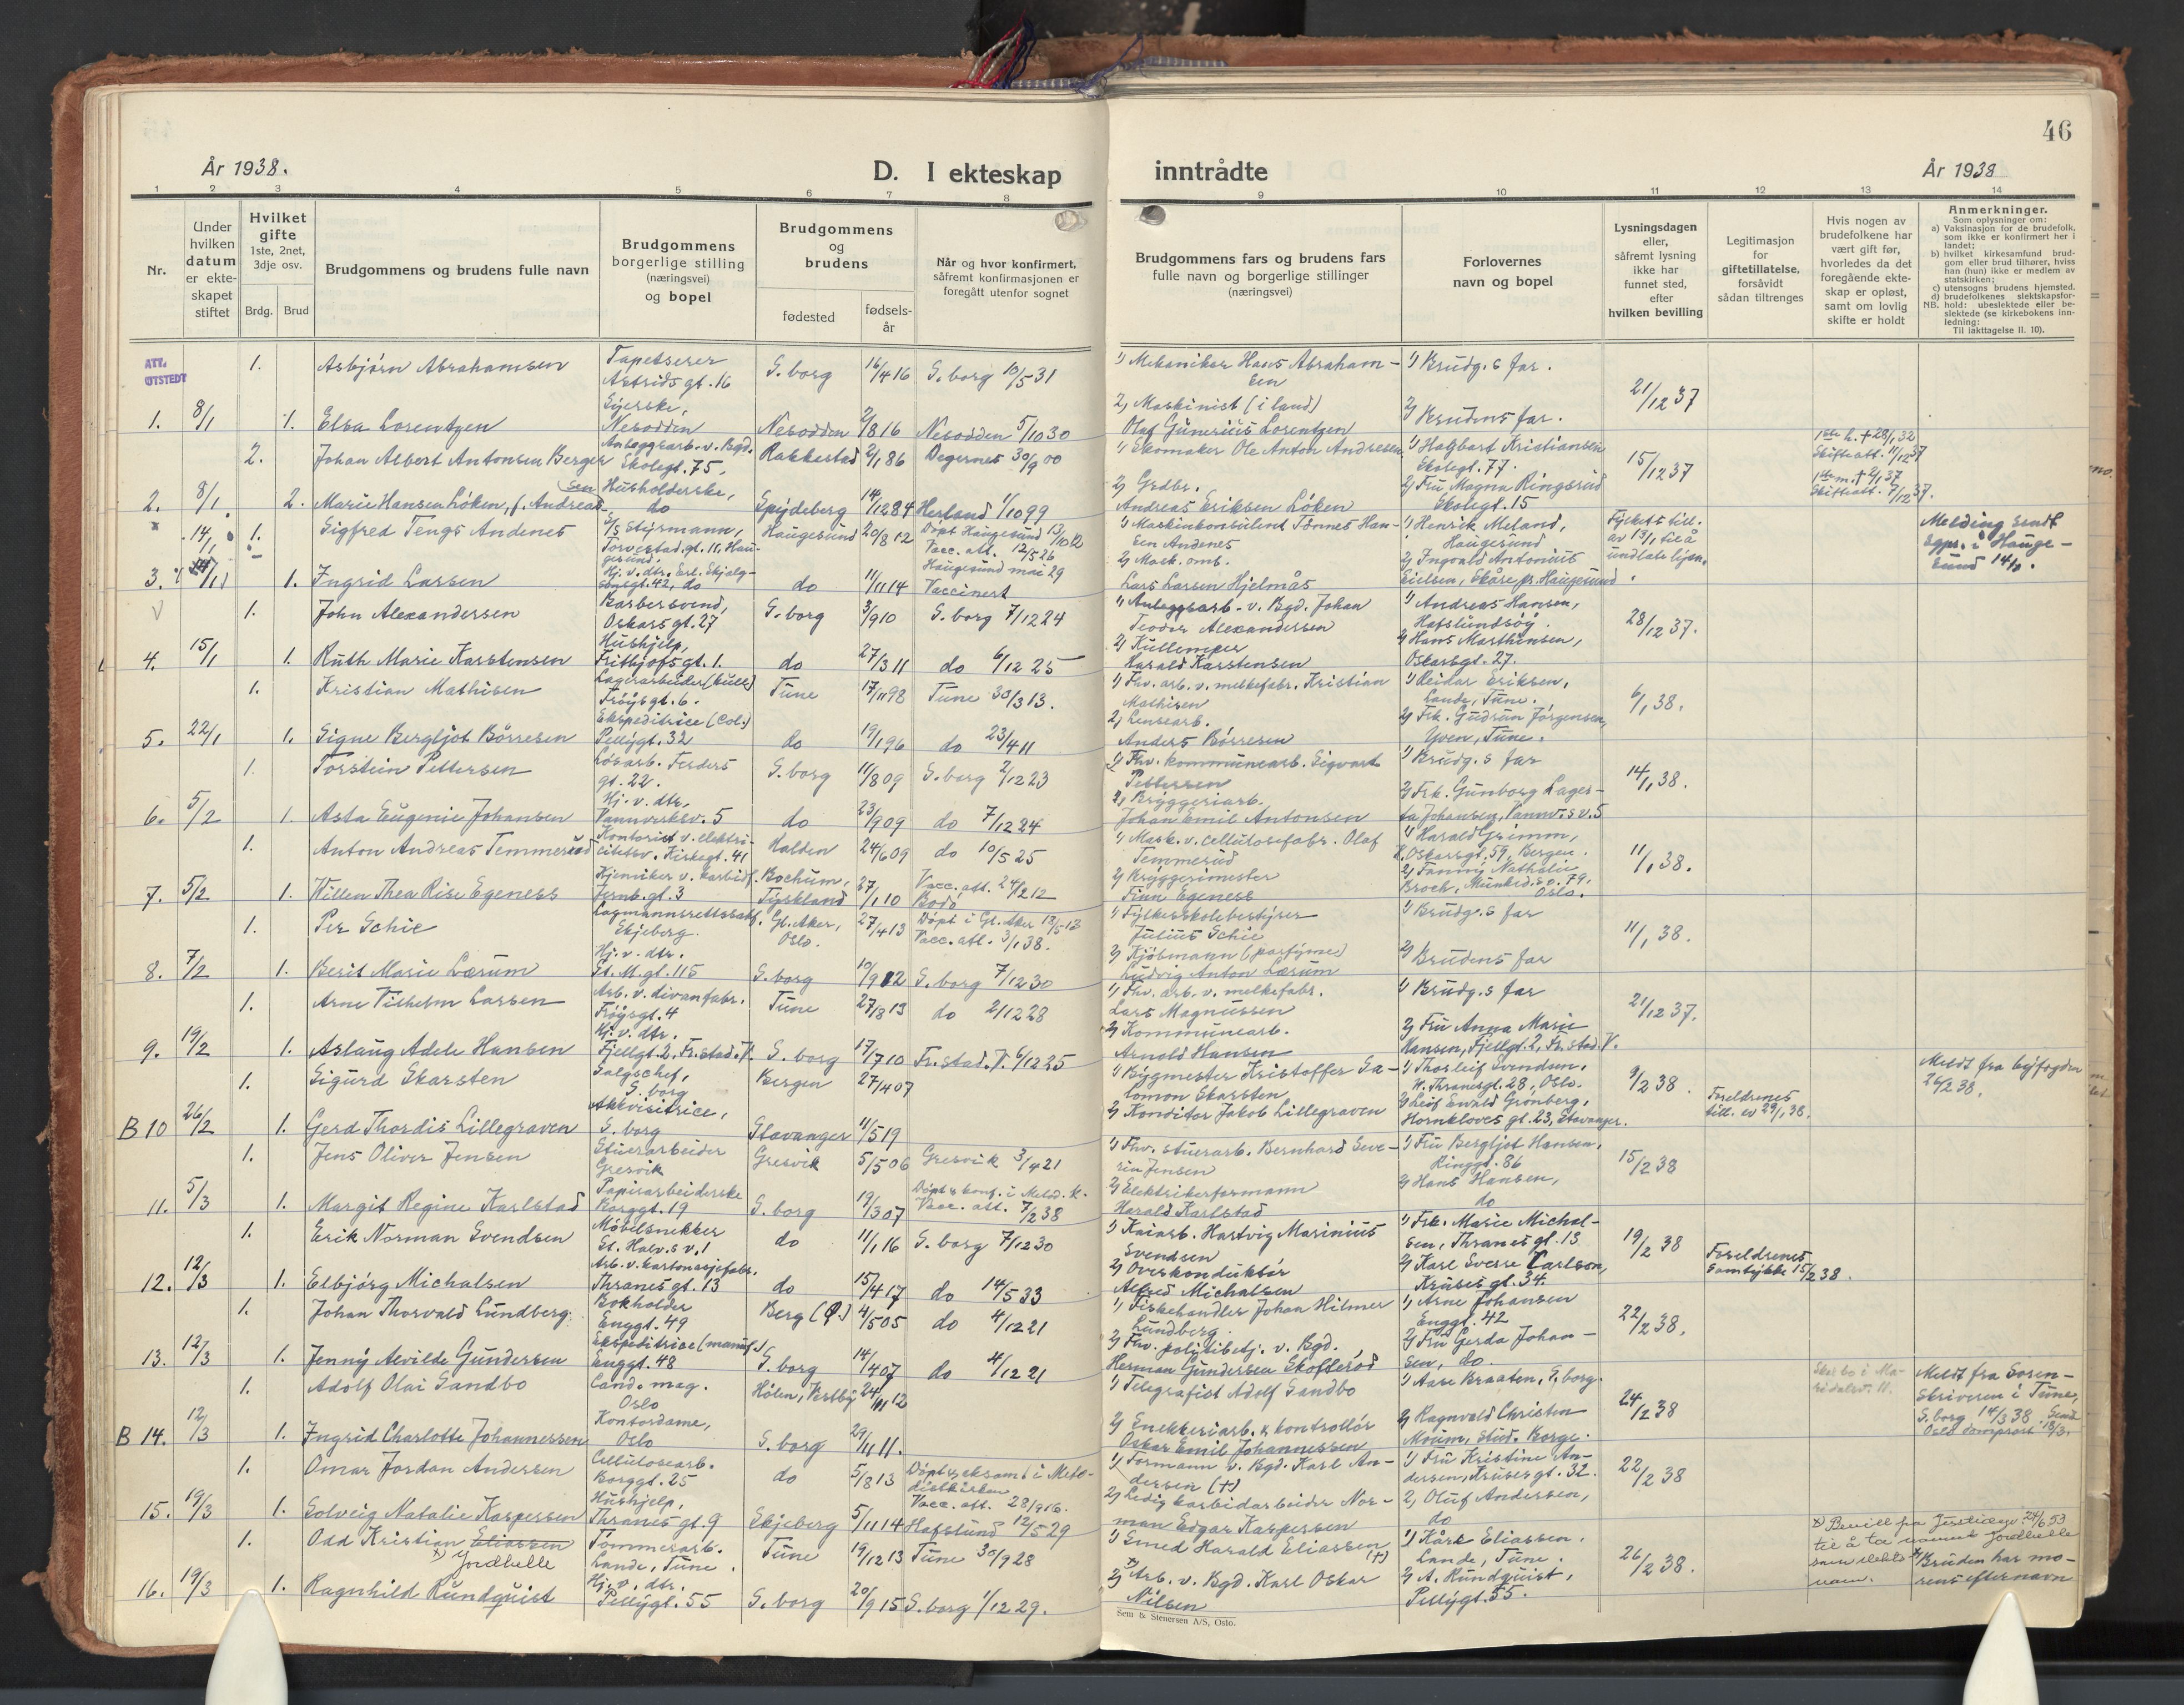 46
År 1938.
D. I ekteskap
inntrådte
År 1938
1 2 3 4 5 6 7 8 9 10 11 12 13 14
Nr.
Under hvilken datum er ekteskapet stiftet
Hvilket gifte 1ste, 2net, 3dje osv.
Brdg. Brud
Brudgommens og brudens fulle navn
Brudgommens borgerlige stilling (næringsvei) og bopel
Brudgommens og brudens
fødested
fødselsår
Når og hvor konfirmert, såfremt konfirmasjonen er foregått utenfor sognet
Brudgommens fars og brudens fars fulle navn og borgerlige stillinger (næringsvei)
Forlovernes navn og bopel
Lysningsdagen eller, såfremt lysning ikke har funnet sted, efter hvilken bevilling
Legitimasjon for giftetillatelse, forsåvidt sådan tiltrenges
Hvis nogen av brudefolkene har vært gift før, hvorledes da det foregående ekteskap er opløst, samt om lovlig skifte er holdt
Anmerkninger.
Som oplysninger om:
a) Vaksinasjon for de brudefolk, som ikke er konfirmert her i landet;
b) hvilket kirkesamfund brudgom eller brud tilhører, hviss han (hun) ikke er medlem av statskirken;
c) utensogns brudens hjemsted.
d) brudefolkenes slektskapsforhold: ubeslektede eller beslektede (se kirkebokens innledning:
NB. Til iakttagelse II. 10).
ATT. UTSTEDT
1. Asbjørn Abrahamsen Tapetserer Astridsgt. 16 S. borg 16/4 16 S. borg 10/5 31 1) Mekaniker Hans Abrahamsen 1) Brudg.s far. 21/12 37
1. 8/1 1. Elsa Lorentzen Syerske, Nesodden Nesodden 2/8 16 Nesodden 5/10 30 2) Maskinist (i land) Olaf Gunerius Lorentzen 2) Brudens far.
2. Johan Albert Antonsen Berger Anleggsarb. v. Bgd. Skolegt. 75, Rakkestad 2/1 86 Degernes 30/9 00 1) Skomaker Ole Anton Andresen 1) Halgbart Kristiansen Skolegt. 77. 15/12 37 1ste h. † 28/1 32 Skifteatt. 11/12 37
2. 8/1 2. Marie Hansen Löken, f. Andreassen Husholderske, do Spydeberg 14/12 84 Herland 1/10 99 2) Grdbr. Andreas Eriksen Löken 2) Fru Magna Ringsrud Skolegt. 15 1ste m. † 2/1 37 Skifteatt. 7/12 37.
14/1 1. Sigfred Tengs Andenes Styrmann, Torvestad.gt. 11, Haugesund. Haugesund 20/8 12 Döpt Haugesund 13/10 12 Vacc. att. 12/5 26 1) Maskinkonsulent Tönnes Hansen Andenes 1) Henrik Meland, Haugesund Fylkets till. av 13/1 til å undlate lysn. Melding sendt sgpr. i Haugesund 14/1.
3. 1. Ingrid Larsen Hj. v. dtr. Erl. Skjalgsonsgt. 42, do do 11/11 14 Haugesund mai 29 Vaccinert 2) Mask. omb. Lars Larsen Hjelmås 2) Ingvald Antonius Eielsen, Skåre pr. Haugesund.
1. John Alexandersen Barbersvend, Oskarsgt. 27 S. borg 3/9 10 S. borg 7/12 24 1) Anleggsarb. v. Bgd. Johan Teodor Alexandersen 1) Andreas Hansen, Hafslundsøy. 28/12 37.
4. 15/1 1. Ruth Marie Karstensen Hushjelp, Frithjofsgt. 1. do 27/3 11 do 6/12 25 2) Kullemper Harald Karstensen 2) Hans Marthinsen, Oskarsgt. 27.
1. Kristian Mathisen Lagerarbeider (kull) Fröysgt. 6. Tune 17/11 98 Tune 30/3 13. 1) Fhv. arb. v. melkefabr. Kristian Mathisen 1) Reidar Eriksen, Lande, Tune. 6/1 38.
5. 22/1 1. Signe Bergljot Börresen Ekspeditrice (Col.) Pellygt. 32 do 19/1 96 do 23/4 11 2) Lensearb. Anders Börresen 2) Frk. Gudrun Jörgensen, Yven, Tune.
1. Torstein Pettersen Lösarb. Ferdersgt. 22. S. borg 11/8 09 S. borg 2/12 23 1) Fhv. kommunearb. Sigvart Pettersen 1) Brudg.s far 14/1 38.
6. 5/2 1. Asta Eugenie Johansen Hj. v. dtr, Vannverksv. 5 do 23/9 09 do 7/12 24 2) Bryggeriarb. Johan Emil Antonsen 2) Frk. Gunborg Lagerta Johansen, Vannv.s v. 5
1. Anton Andreas Temmerud Kontorist v. elektricitetsv. Kirkegt. 41 Halden 24/6 09 do 10/5 25 1) Mask. v. cellulosefabr. Olaf Temmerud 1) Harald Grimm, Oskarsgt. 59, Bergen. 11/1 38.
7. 5/2 1. Willen Thea Rise Egeness Kjemiker v. karbidf. Jernb.gt. 3 Bochum, Tyskland 27/1 10 Vacc. att. 24/2 12 Bodö 2) Bryggerimester Finn Egeness 2) Fanny Nathalie Broch, Munked.s v. 79, Oslo.
1. Per Schie Lagmannsrettssekr. Skjeberg. Gl. Aker, Oslo. 27/4 13 Döpt i Gl. Aker 13/5 13 Vacc. att. 3/1 38. 1) Fylkesskolebestyrer Julius Schie 1) Brudg.s far 11/1 38.
8. 7/2 1. Berit Marie Lærum Hj. v. dtr. St. M. gt. 115 S. borg 10/9 12 S. borg 7/12 30 2) Kjöbmann (parfyme) Ludvig Anton Lærum 2) Brudens far
1. Arne Vilhelm Larsen Arb. v. divanfabr. Fröysgt. 4 Tune 27/8 13 do 2/12 28 1) Fhv. arb. v. melkefabr. Lars Magnussen 1) Brudg.s far 21/12 37.
9. 19/2 1. Aslaug Adele Hansen Hj. v. dtr. Fjellgt. 2, Fr.stad. V. S. borg 17/7 10 Fr.stad. V. 6/12 25 2) Kommunearb. Arnold Hansen 2) Fru Anna Marie Hansen, Fjellgt. 2, Fr.stad. V.
1. Sigurd Skarsten Salgschef, S. borg Bergen 27/4 07 1) Bygmester Kristoffer Salomon Skarsten 1) Thorleif Svendsen, W. Thranesgt. 28, Oslo. 9/2 38. Meldt fra byfogden 26/2 38.
B 10 26/2 1. Gerd Thordis Lillegraven Akkvisitrice, S. borg Stavanger 11/5 19 2) Konditor Jakob Lillegraven 2) Leif Ewald Grønberg, Hornklovesgt. 23, Stavanger. Foreldrenes till. ev 29/1 38.
1. Jens Oliver Jensen Stuerarbeider Gresvik Gresvik 5/5 06 Gresvik 3/4 21 1) Fhv. stuerarb. Bernhard Severin Jensen 1) Fru Bergljot Hansen, Ringgt. 86 15/2 38
11. 5/3 1. Margit Regine Karlstad Papirarbeiderske Borggt. 19 S. borg 19/3 07 Döpt & konf. i Metod. k. Vacc. att. 7/2 38 2) Elektrikerformann Harald Karlstad 2) Hans Hansen, do
1. Erik Norman Svendsen Möbelsnekker St. Halv.s v. 1 do 11/1 16 S. borg 7/12 30 1) Kaiarb. Hartvig Marinius Svendsen 1) Frk. Marie Michalsen, Thranesgt. 13 19/2 38
12. 12/3 1. Elbjörg Michalsen Arb. v. kartonasjefabr. Thranesgt. 13 do 15/4 17 do 14/5 33 2) Overkonduktör Alfred Michalsen 2) Karl Sverre Carlson, Krusesgt. 34. Foreldrenes samtykke 15/2 38.
1. Johan Thorvald Lundberg Bokholder Enggt. 49 Berg (Ø.) 4/5 05 do 4/12 21 1) Fiskehandler Johan Hilmer Lundberg. 1) Arne Johansen Enggt. 42 22/2 38.
13. 12/3 1. Jenny Alvilde Gundersen Ekspeditrice (manuf.) Enggt. 48 S. borg 14/1 07 do 4/12 21 2) Fhv. politibetj. v. Bgd. Herman Gundersen Skofteröd 2) Fru Gerda Johansen, do.
1. Adolf Olai Sandbo Cand. mag. Oslo Hölen, Vestby 24/11 12 1) Telegrafist Adolf Sandbo 1) Aase Braaten, S. borg. 24/2 38 Skal bo i Maridalsv. 11. Meldt fra Sorenskriveren i Tune, S. borg 14/3 38. Sendt Oslo domprost 18/3.
B 14. 12/3 1. Ingrid Charlotte Johannessen Kontordame, Oslo S. borg 29/11 11. 2) Snekkeriarb. & kontrollör Oskar Emil Johannessen 2) Ragnvald Christen Moum, stud. Borge.
1. Omar Jordan Andersen Cellulosearb. Borggt. 25 do 5/8 13 Döpt i Metodistkirken Vacc. att. 28/9 16. 1) Formann v. Bgd. Karl Andersen (†) 1) Fru Kristine Andersen, Krusesgt. 32. 22/2 38
15. 19/3 1. Solveig Natalie Kaspersen Hushjelp, Thranesgt. 9 Skjeberg 5/11 14 Hafslund 12/5 29 2) Ledig karbidarbeider Norman Edgar Kaspersen 2) Oluf Andersen, do
1. Odd Kristian Eliassen x) Jordhelle Tömmerarb. Lande, Tune. Tune 19/12 13 Tune 30/9 28 1) Smed Harald Eliassen (†) 1) Kåre Eliassen, Lande, Tune. 26/2 38. x) Bevill fra Justisdep. 24/6 53 til å ta navnet Jordhelle som slektsnavn.
16. 19/3 1. Ragnhild Rundquist Hj. v. dtr. Pellygt. 55 S. borg 20/9 15 S. borg 1/12 29. 2) Arb. v. Bgd. Karl Oskar Nilsen 2) A. Rundquist, Pellygt. 55. x) Bruden har morens efternavn
Sem & Stenersen A/S, Oslo.